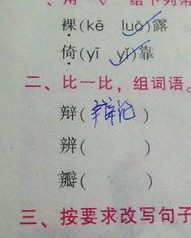 用"√"给下列带
裸(kē luǒ)露
倚(yī yǐ)靠
二、比一比,组词语。
辩(辩论)
辨( )
瓣( )
三、按要求改写句子